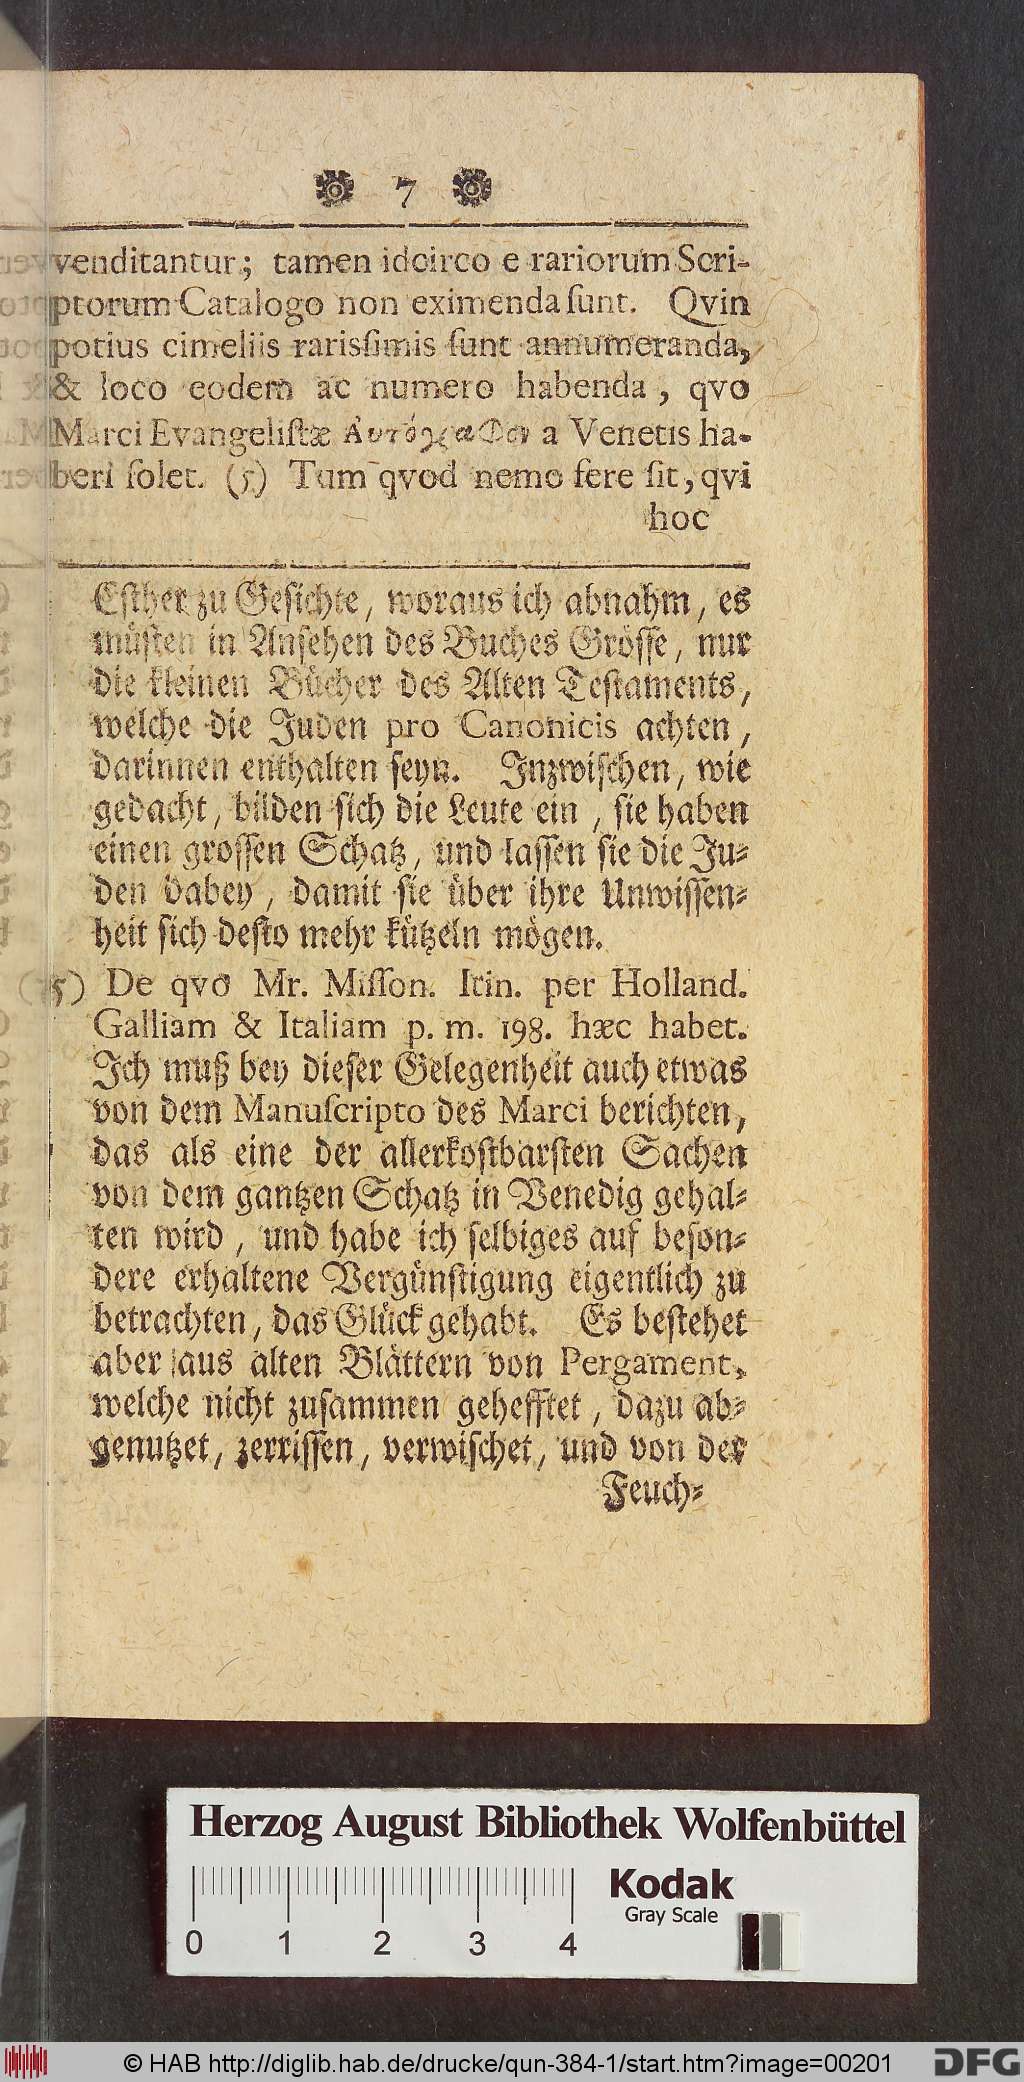 7
venditantur; tamen idcirco e rariorum Scri-
ptorum Catalogo non eximenda ſunt. Qvin
potius cimeliis rarisſimis ſunt annumeranda,
& loco eodem ac numero habenda, qvo
Marci Evangeliſtæ Αυτόγραφον a Venetis ha-
beri ſolet. (5) Tum qvod nemo fere ſit, qvi
hoc
Eſther zu Geſichte, woraus ich abnahm, es
müſten in Anſehen des Buches Gröſſe, nur
die kleinen Bücher des Alten Teſtaments,
welche die Juden pro Canonicis achten,
darinnen enthalten ſeyn. Inzwiſchen, wie
gedacht, bilden ſich die Leute ein, ſie haben
einen groſſen Schatz, und laſſen ſie die Ju-
den dabey, damit ſie über ihre Unwiſſen-
heit ſich deſto mehr kützeln mögen.
(5) De qvo Mr. Miſſon. Itin. per Holland.
Galliam & Italiam p. m. 198. hæc habet.
Ich muß bey dieſer Gelegenheit auch etwas
von dem Manuſcripto des Marci berichten,
das als eine der allerkoſtbarſten Sachen
von dem gantzen Schatz in Venedig gehal-
ten wird, und habe ich ſelbiges auf beſon-
dere erhaltene Vergünſtigung eigentlich zu
betrachten, das Glück gehabt. Es beſtehet
aber aus alten Blättern von Pergament,
welche nicht zuſammen gehefftet, dazu ab-
genutzet, zerriſſen, verwiſchet, und von der
Feuch-
Herzog August Bibliothek Wolfenbüttel
Kodak
Gray Scale
0 1 2 3 4
© HAB http://diglib.hab.de/drucke/qun-384-1/start.htm?image=00201
DFG